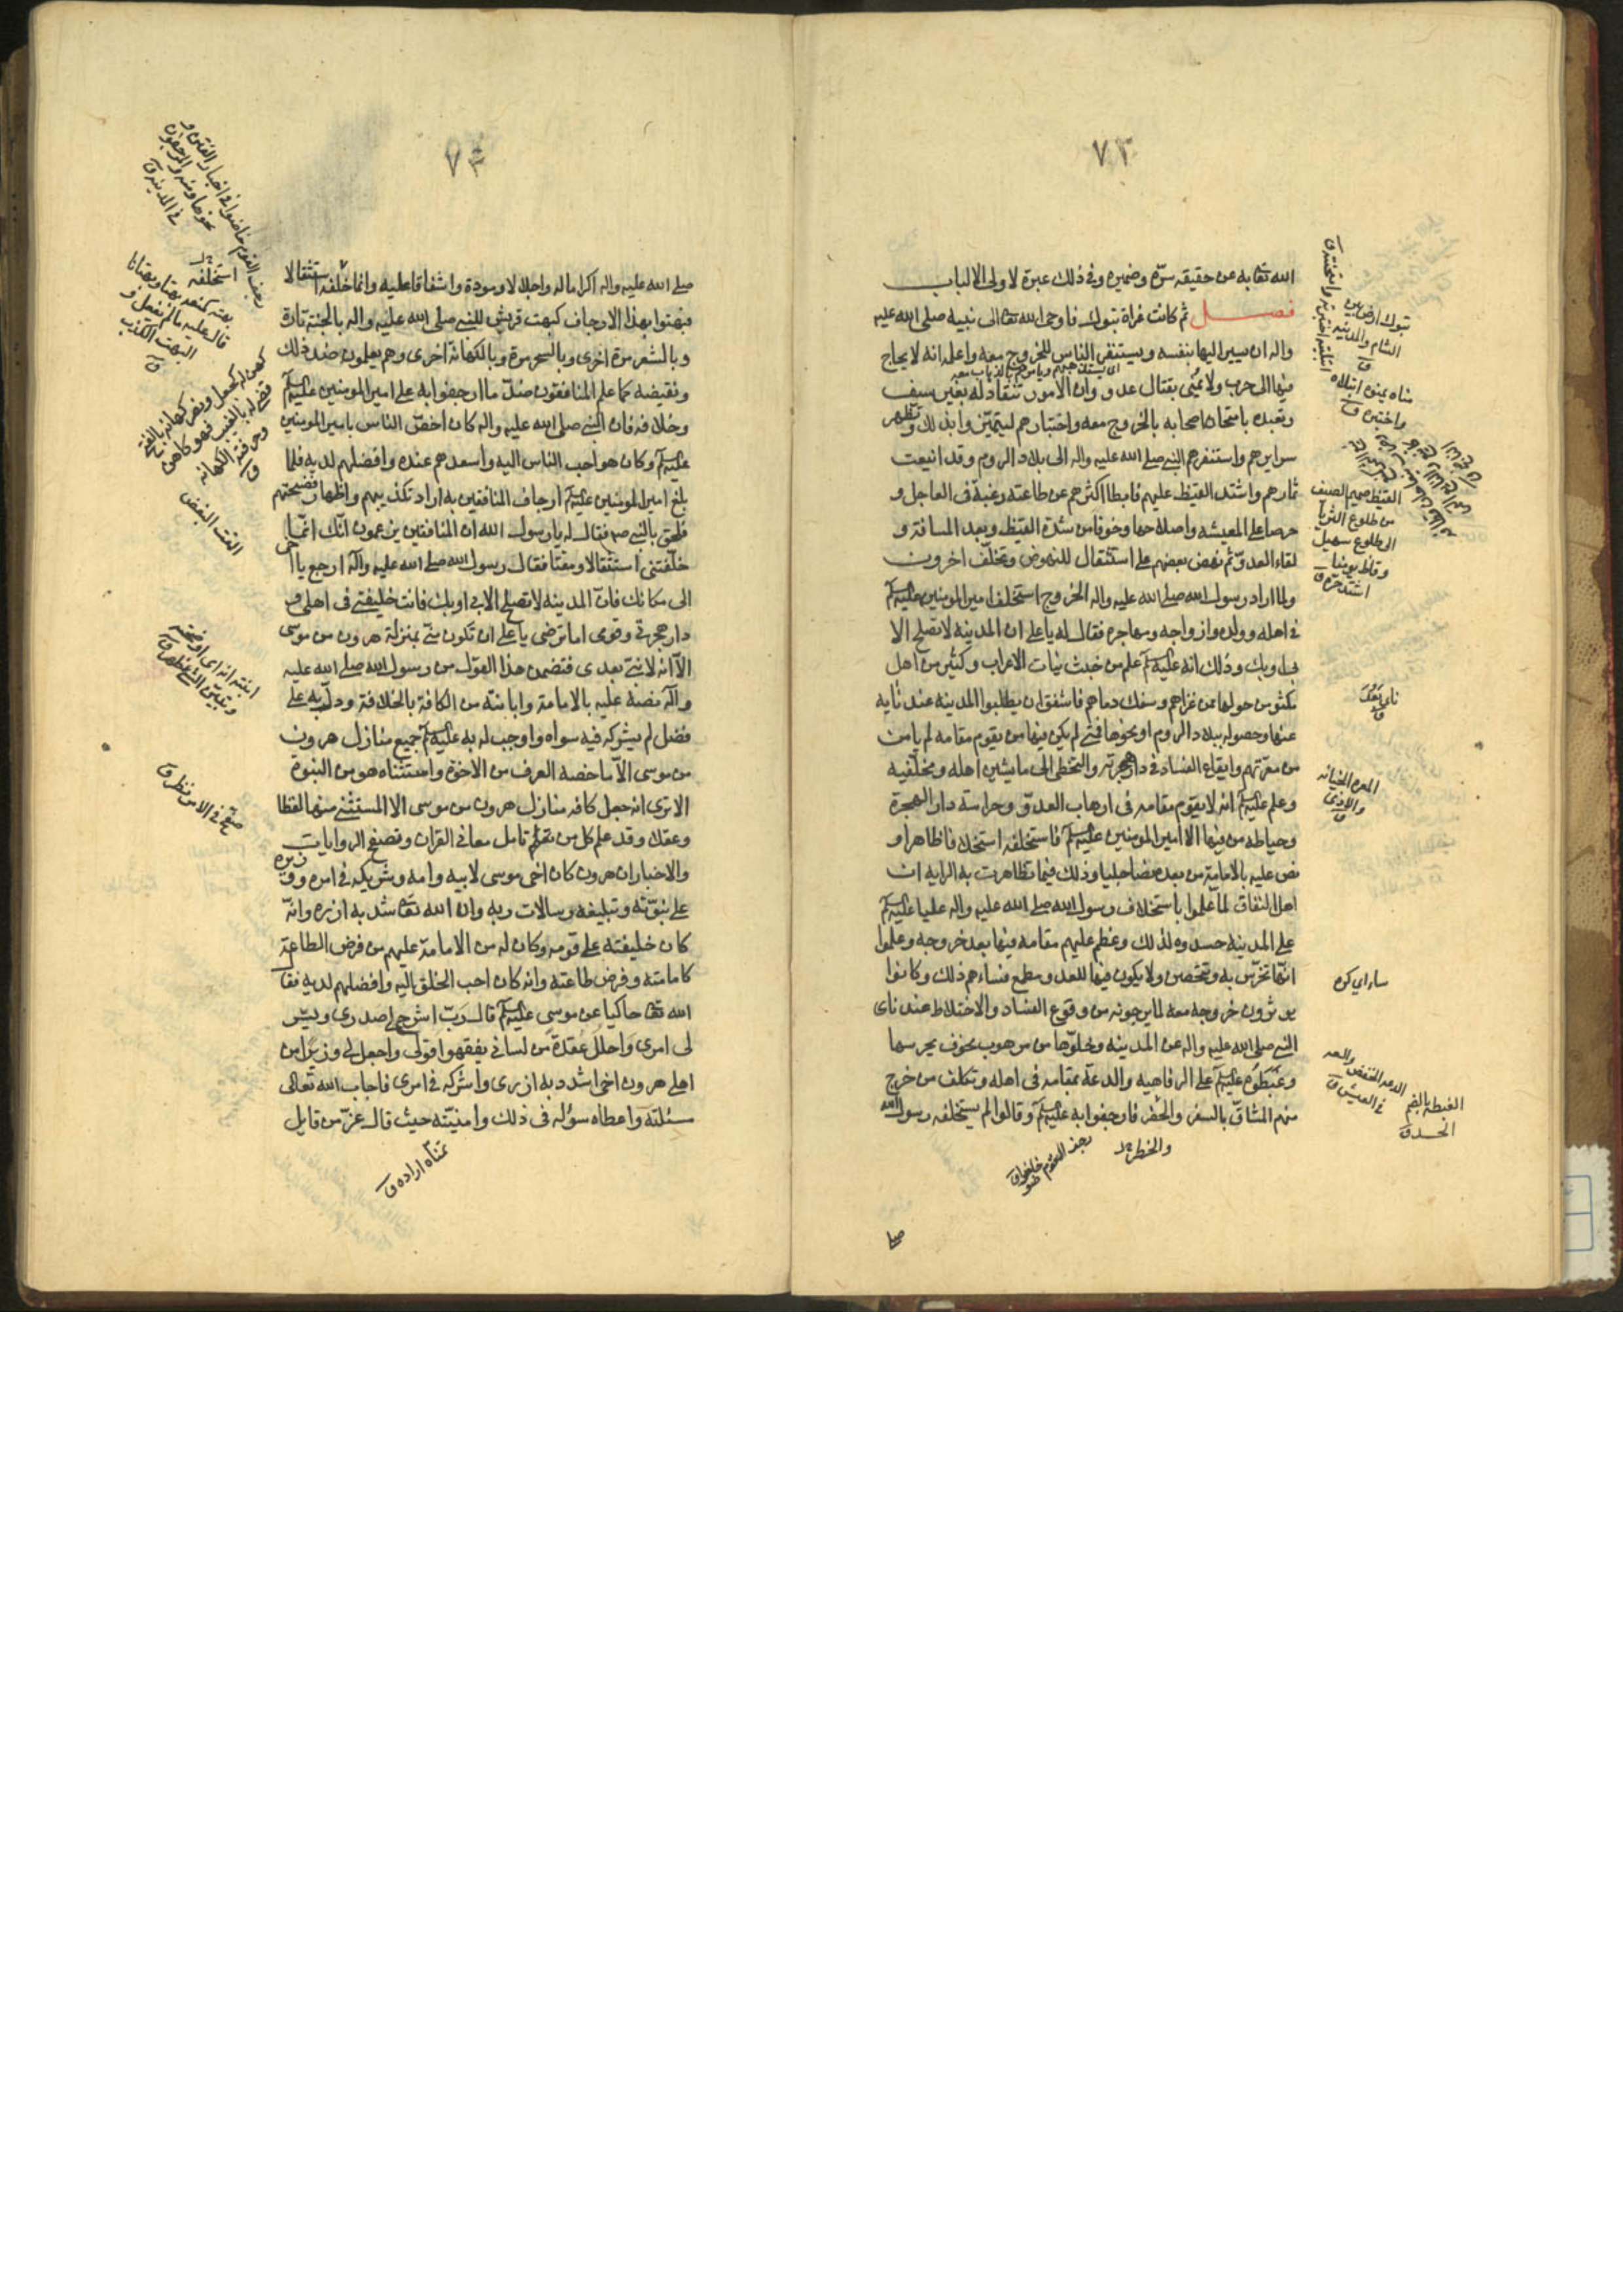 ٧٣
الله تعا به عن حقيقه سرّه وضميره وفي ذلك عبرة لاولى الالباب
فصل ثم كانت غزاة تبوك فاوحى الله تعالى نبيه صلى الله عليه
واله ان يسير اليها بنفسه ويستنفر الناس للخروج معه واعلمه انه لا يحتاج
فيها الى حرب ولا يمنى بقتال عدو وان الامور تنقاد له بغير سيف
وتعبده بامتحان اصحابه بالخروج معه واختبارهم ليتميّزوا بذلك وتظهر
سرايرهم واستنفرهم النبي صلى الله عليه واله الى بلاد الروم وقد اينعت
ثمارهم واشتد القيظ عليهم فابطا اكثرهم عن طاعته رغبة في العاجل و
حرصا على المعيشه واصلاحها وخوفا من شدة القيظ وبعد المسافة و
لقاء العدوّ ثم نهض بعضهم على استثقال للنهوض وتخلف اخرون
ولما اراد رسول الله صلى الله عليه واله الخروج استخلف امير المومنين عليه السلام
في اهله وولده وازواجه ومهاجره فقال له يا على ان المدينه لا تصلح الا
بى او بك وذلك انه عليه السلام علم من خبث نيات الاعراب وكثير من اهل
مكة ومن حولها ممن غزاهم وسفك دماهم فاشفق ان يطلبوا المدينه عند نايه
عنها وحصوله ببلاد الروم او نحوها فمتى لم يكن فيها من يقوم مقامه لم يامن
من معرّتهم وايقاع الفساد في دار هجرته والتخطى الى ما يشين اهله ومخلفيه
وعلم عليه السلام انه لا يقوم مقامه في ارهاب العدوّ وحراسة دار الهجرة
وحياطه من فيها الا امير المومنين عليه السلام فاستخلفه استخلافا ظاهرا و
نص عليه بالامامة من بعده نصا جليا وذلك فيما تظاهرت به الرايه ان
اهل النفاق لما علموا باستخلاف رسول الله صلى الله عليه واله عليا عليه السلام
على المدينه حسدوه لذلك وعظم عليهم مقامه فيها بعد خروجه وعلموا
انها تخرّس به وتتحصن ولا يكون فيها للعدو مطمع فساءهم ذلك وكانوا
يوثرون خروجه معه لما يرجونه من وقوع الفساد والاختلاط عند ناى
النبي صلى الله عليه واله عن المدينه وخلوّها من مرهوب مخوف يحرسها
وغبطوه عليه السلام على الرفاهيه والدعة بمقامه في اهله وتكلف من خرج
منهم المشاقّ بالسفر والخطر فارجفوا به عليه السلام وقالوا لم يستخلفه رسول الله
والخطر
تبوك ارض بين
الشام والمدينه
مناه يمنوه ابتلاه
واختبره ق
القيظ صميم الصيف
من طلوع الثريا
الى طلوع سهيل
وقاظ يومنا
اشتد حرّه ق
ناى بعد
المعره الخيانه
والاذى
ساءاى كره
الغبطه بالضم
الحسد ق
٧٤
صلى الله عليه واله اكراما له واجلالا ومودة واشفاقا عليه وانما خلفه استثقالا
فبهتوا بهذا الارجاف كبهت قريش للنبى صلى الله عليه واله بالجنة تارة
وبالشعر مرة اخرى وبالسحر مرة وبالكهانة اخرى وهم يعلمون ضد ذلك
ونقيضه كما علم المنافقون ضدّ ما ارجفوا به على امير المومنين عليه السلام
وخلافه فان النبى صلى الله عليه واله كان اخصّ الناس بامير المومنين
عليه السلام وكان هو احب الناس اليه واسعدهم عنده وافضلهم لديه فلما
بلغ امير المومنين عليه السلام ارجاف المنافقين به اراد تكذيبهم واظهار فضيحتهم
فلحق بالنبى صم فقال له يا رسول الله ان المنافقين يزعمون انّك انّما
خلّفتنى استثقالا ومقتا فقال رسول الله صلى الله عليه وآله ارجع يا اخى
الى مكانك فانّ المدينه لا تصلح الا بى او بك فانت خليفتى في اهلى و
دار هجرتى وقومى اما ترضى يا على ان تكون منّى بمنزلة هرون من موسى
الّا انه لا نبىّ بعدى فتضمن هذا القول من رسول الله صلى الله عليه
وآله نصه عليه بالامامة وابانته من الكافة بالخلافة ودلّ به على
فضل لم يشركه فيه سواه واوجب له به عليه السلام جميع منازل هرون
من موسى الّا ما خصه العرف من الاخوّة واستثناه هو من النبوة
الا ترى انه جعل كافه منازل هرون من موسى الا المستثنى منها لفظا
وعقلا وقد علم كل من تامل معانى القران وتصفح الروايات
والاخبار ان هرون كان اخى موسى لابيه وامه وشريكه في امره ووزيره
على نبوّته وتبليغه رسالات ربه وان الله تعا شد به ازره وانّه
كان خليفته على قومه وكان له من الامامة عليهم من فرض الطاعة
كامامته وفرض طاعته وانه كان احب الخلق اليه وافضلهم لديه فقا
الله تعا حاكيا عن موسى عليه السلام قال رَبّ اشرح لى صدرى ويسّر
لى امرى واحلُل عُقدةً من لسانى يفقهوا قولى واجعل لى وزيرا من
اهلى هرون اخى اشدد به ازرى واشركه في امرى فاجاب الله تعالى
مسئلته واعطاه سؤله في ذلك وامنيّته حيث قال عزّ من قايل
تمنّاه اراده ق
استخلفه
بهته كمنعه بهتا وبهتانا
قال عليه ما لم يفعل و
البهت الكذب
ق
المقت البغض
صفح في الامر نظر ق